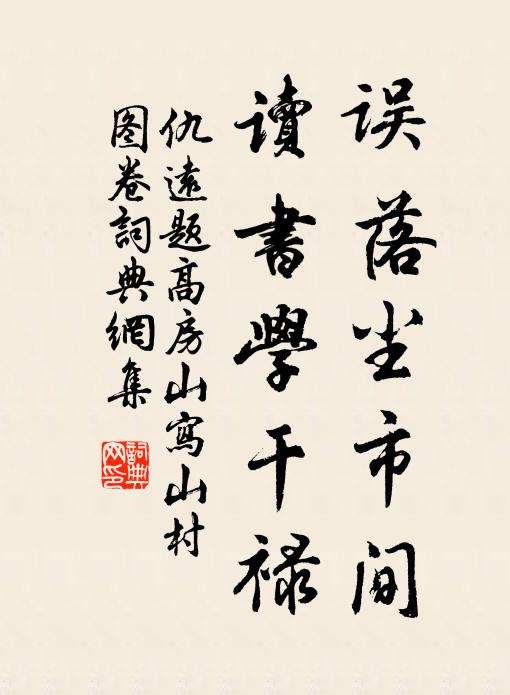 误落尘市间
讀書學干禄
仇遠题高房山寫山村
图卷詞典網集
詞典网印